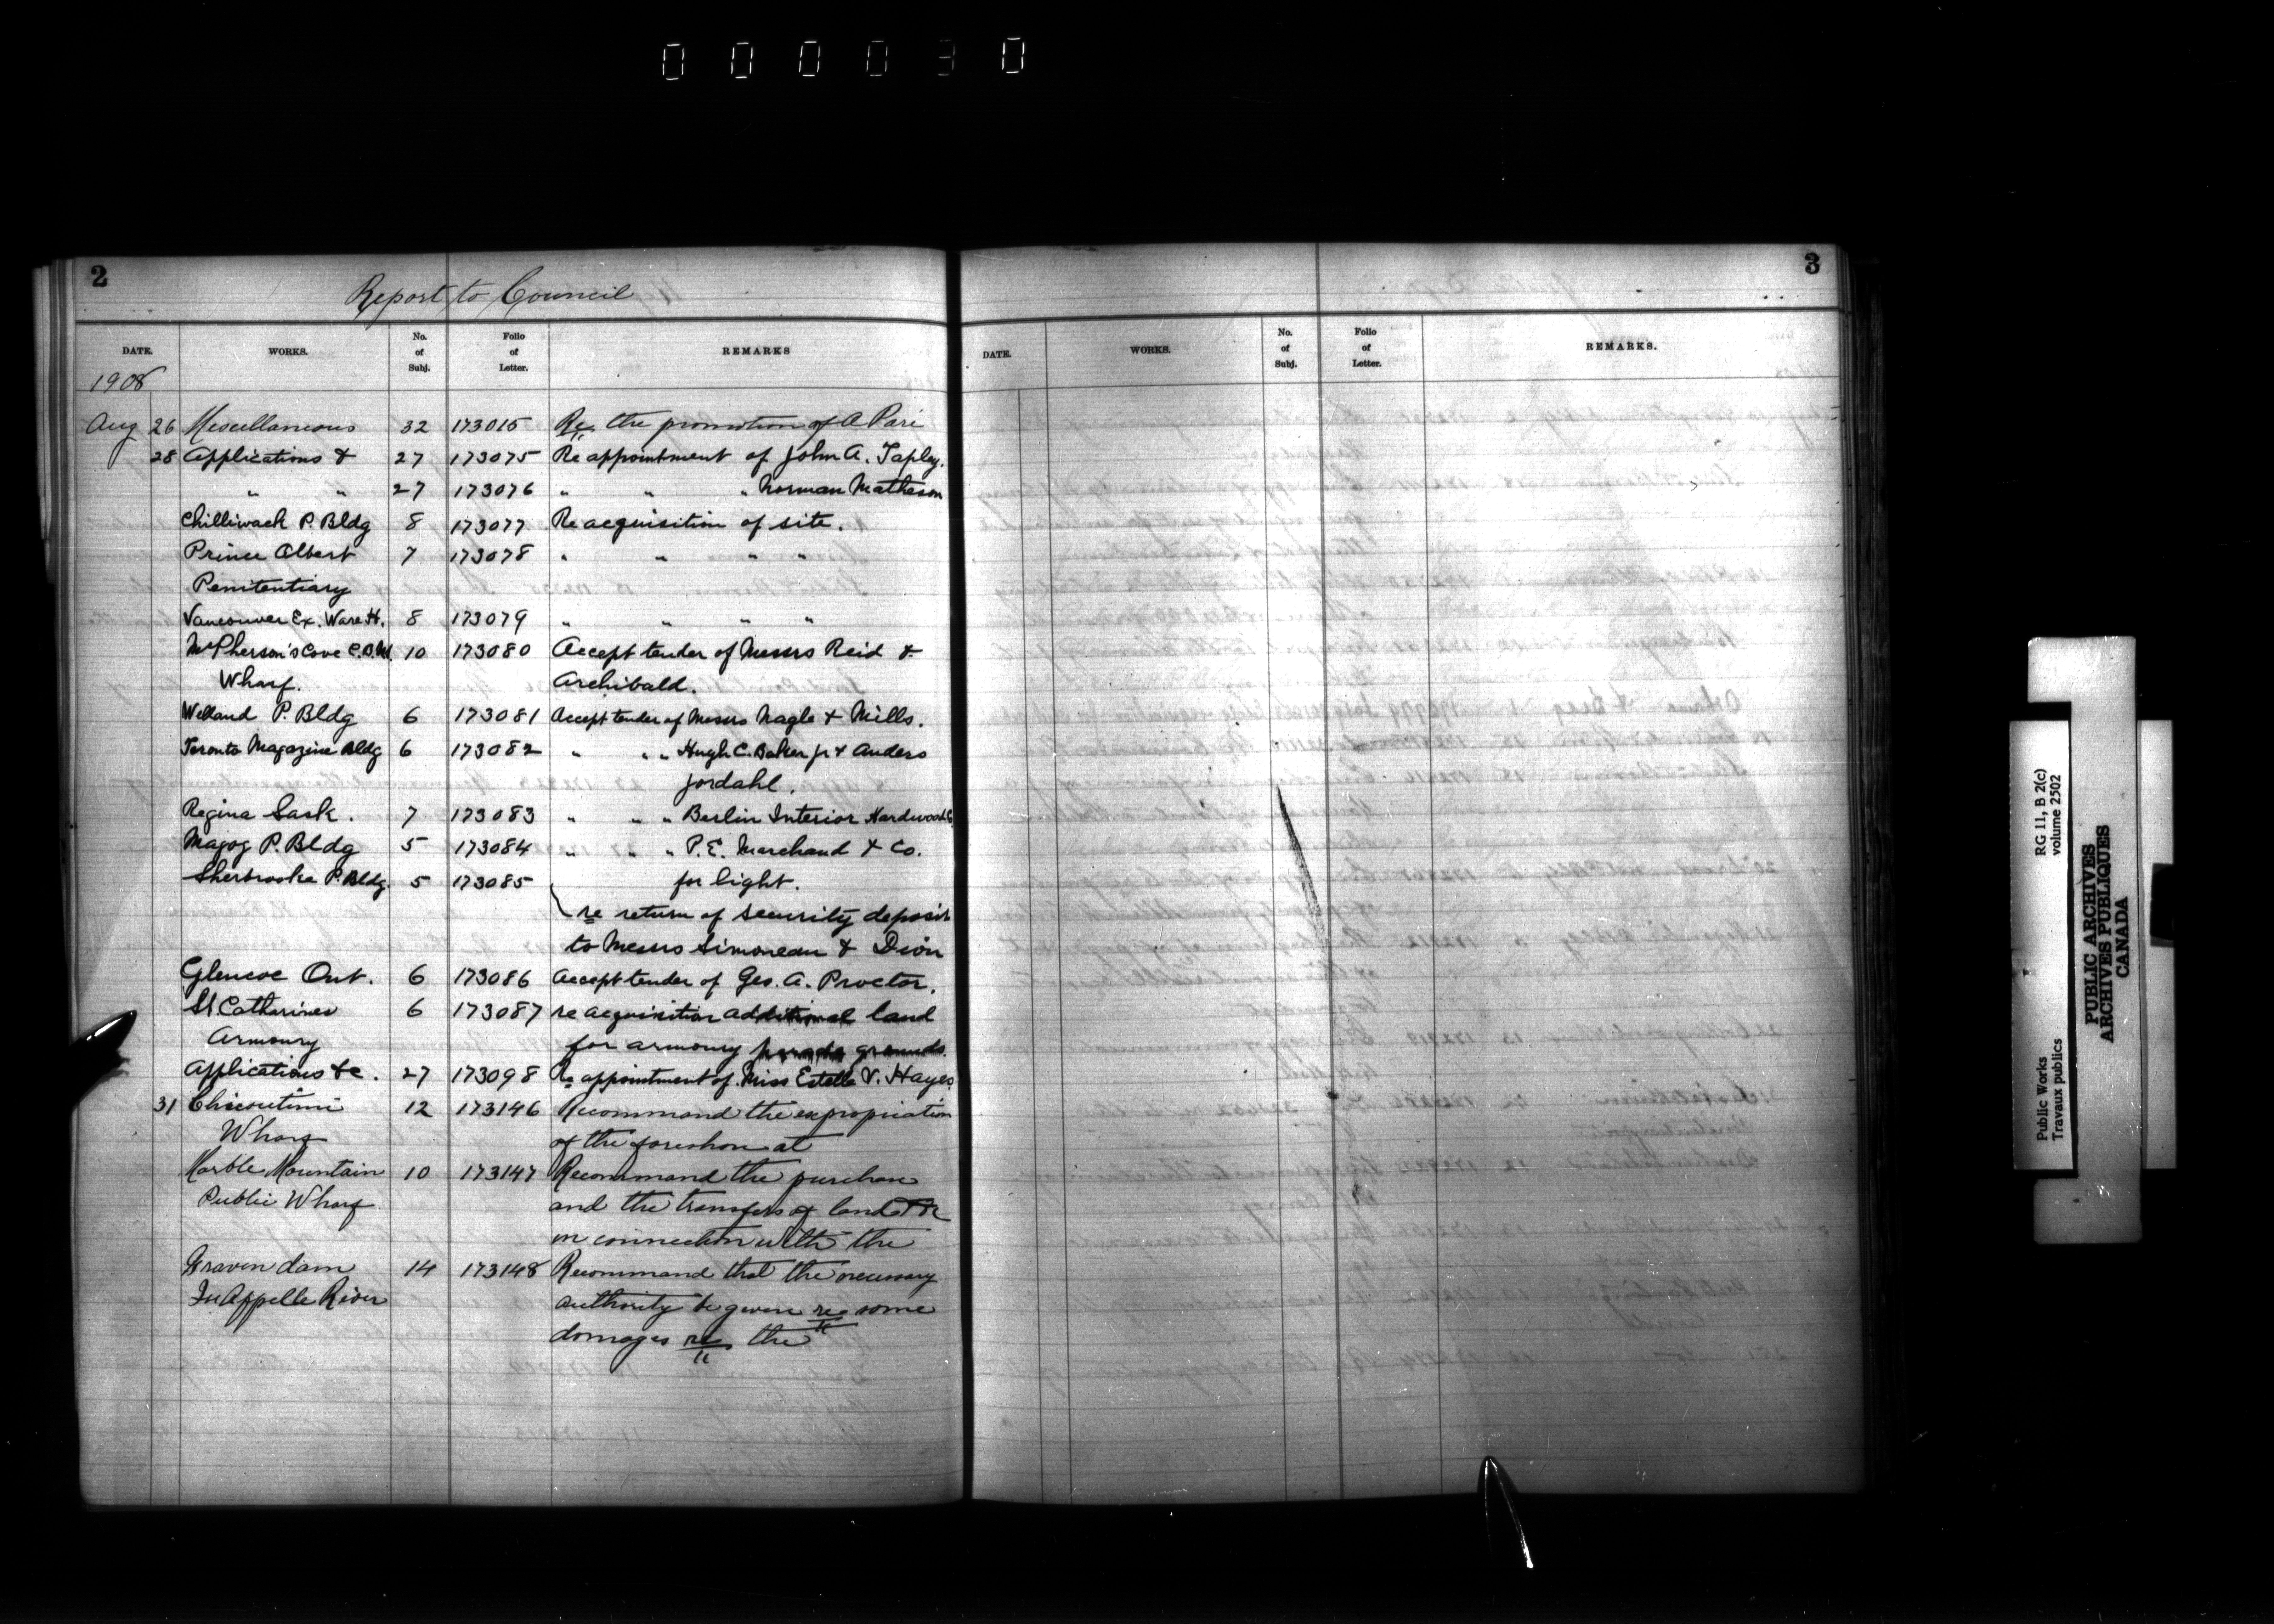 000030
2
Report to Council
DATE. WORKS. No. of Subj. Folio of Letter. REMARKS
1908
Aug 26 Miscellaneous 32 173015 Re the promotion of A Pari
28 Applications & 27 173075 Re appointment of John A. Tapley.
" " 27 173076 " " " Norman Matheson
Chilliwack P. Bldg 8 173077 Re acquisition of site.
Prince Albert 7 173078 " " " "
Penitentiary
Vancouver Ex. Ware H. 8 173079 " " " "
McPherson's Cove C.B. 10 173080 Accept tender of Messrs Reid &
Wharf. Archibald.
Welland P. Bldg 6 173081 Accept tender of Messrs Nagle & Mills.
Toronto Magazine Bldg 6 173082 " " " Hugh C. Baker jr & Anders
Jordahl.
Regina Sask. 7 173083 " " " Berlin Interior Hardwood Co
Magog P. Bldg 5 173084 " " " P.E. Marchand & Co.
Sherbrooke P. Bldg. 5 173085 for light.
re return of security deposit
to Messrs Simoneau & Dion
Glencoe Ont. 6 173086 Accept tender of Geo. A. Proctor.
St Catharines 6 173087 re acquisition additional land
Armoury for armoury parade grounds.
Applications &c. 27 173098 Re appointment of Miss Estelle V. Hayes
31 Chicoutimi 12 173146 Recommand the expropriation
Wharf of the foreshore at
Marble Mountain 10 173147 Recommand the purchase
Public Wharf and the transfers of land &c
in connection with the
Craven dam 14 173148 Recommand that the necessary
Qu'Appelle River authority be given re some
damages re the
3
DATE. WORKS. No. of Subj. Folio of Letter. REMARKS.
Public Works RG 11, B 2(c)
Travaux publics volume 2502
PUBLIC ARCHIVES
ARCHIVES PUBLIQUES
CANADA